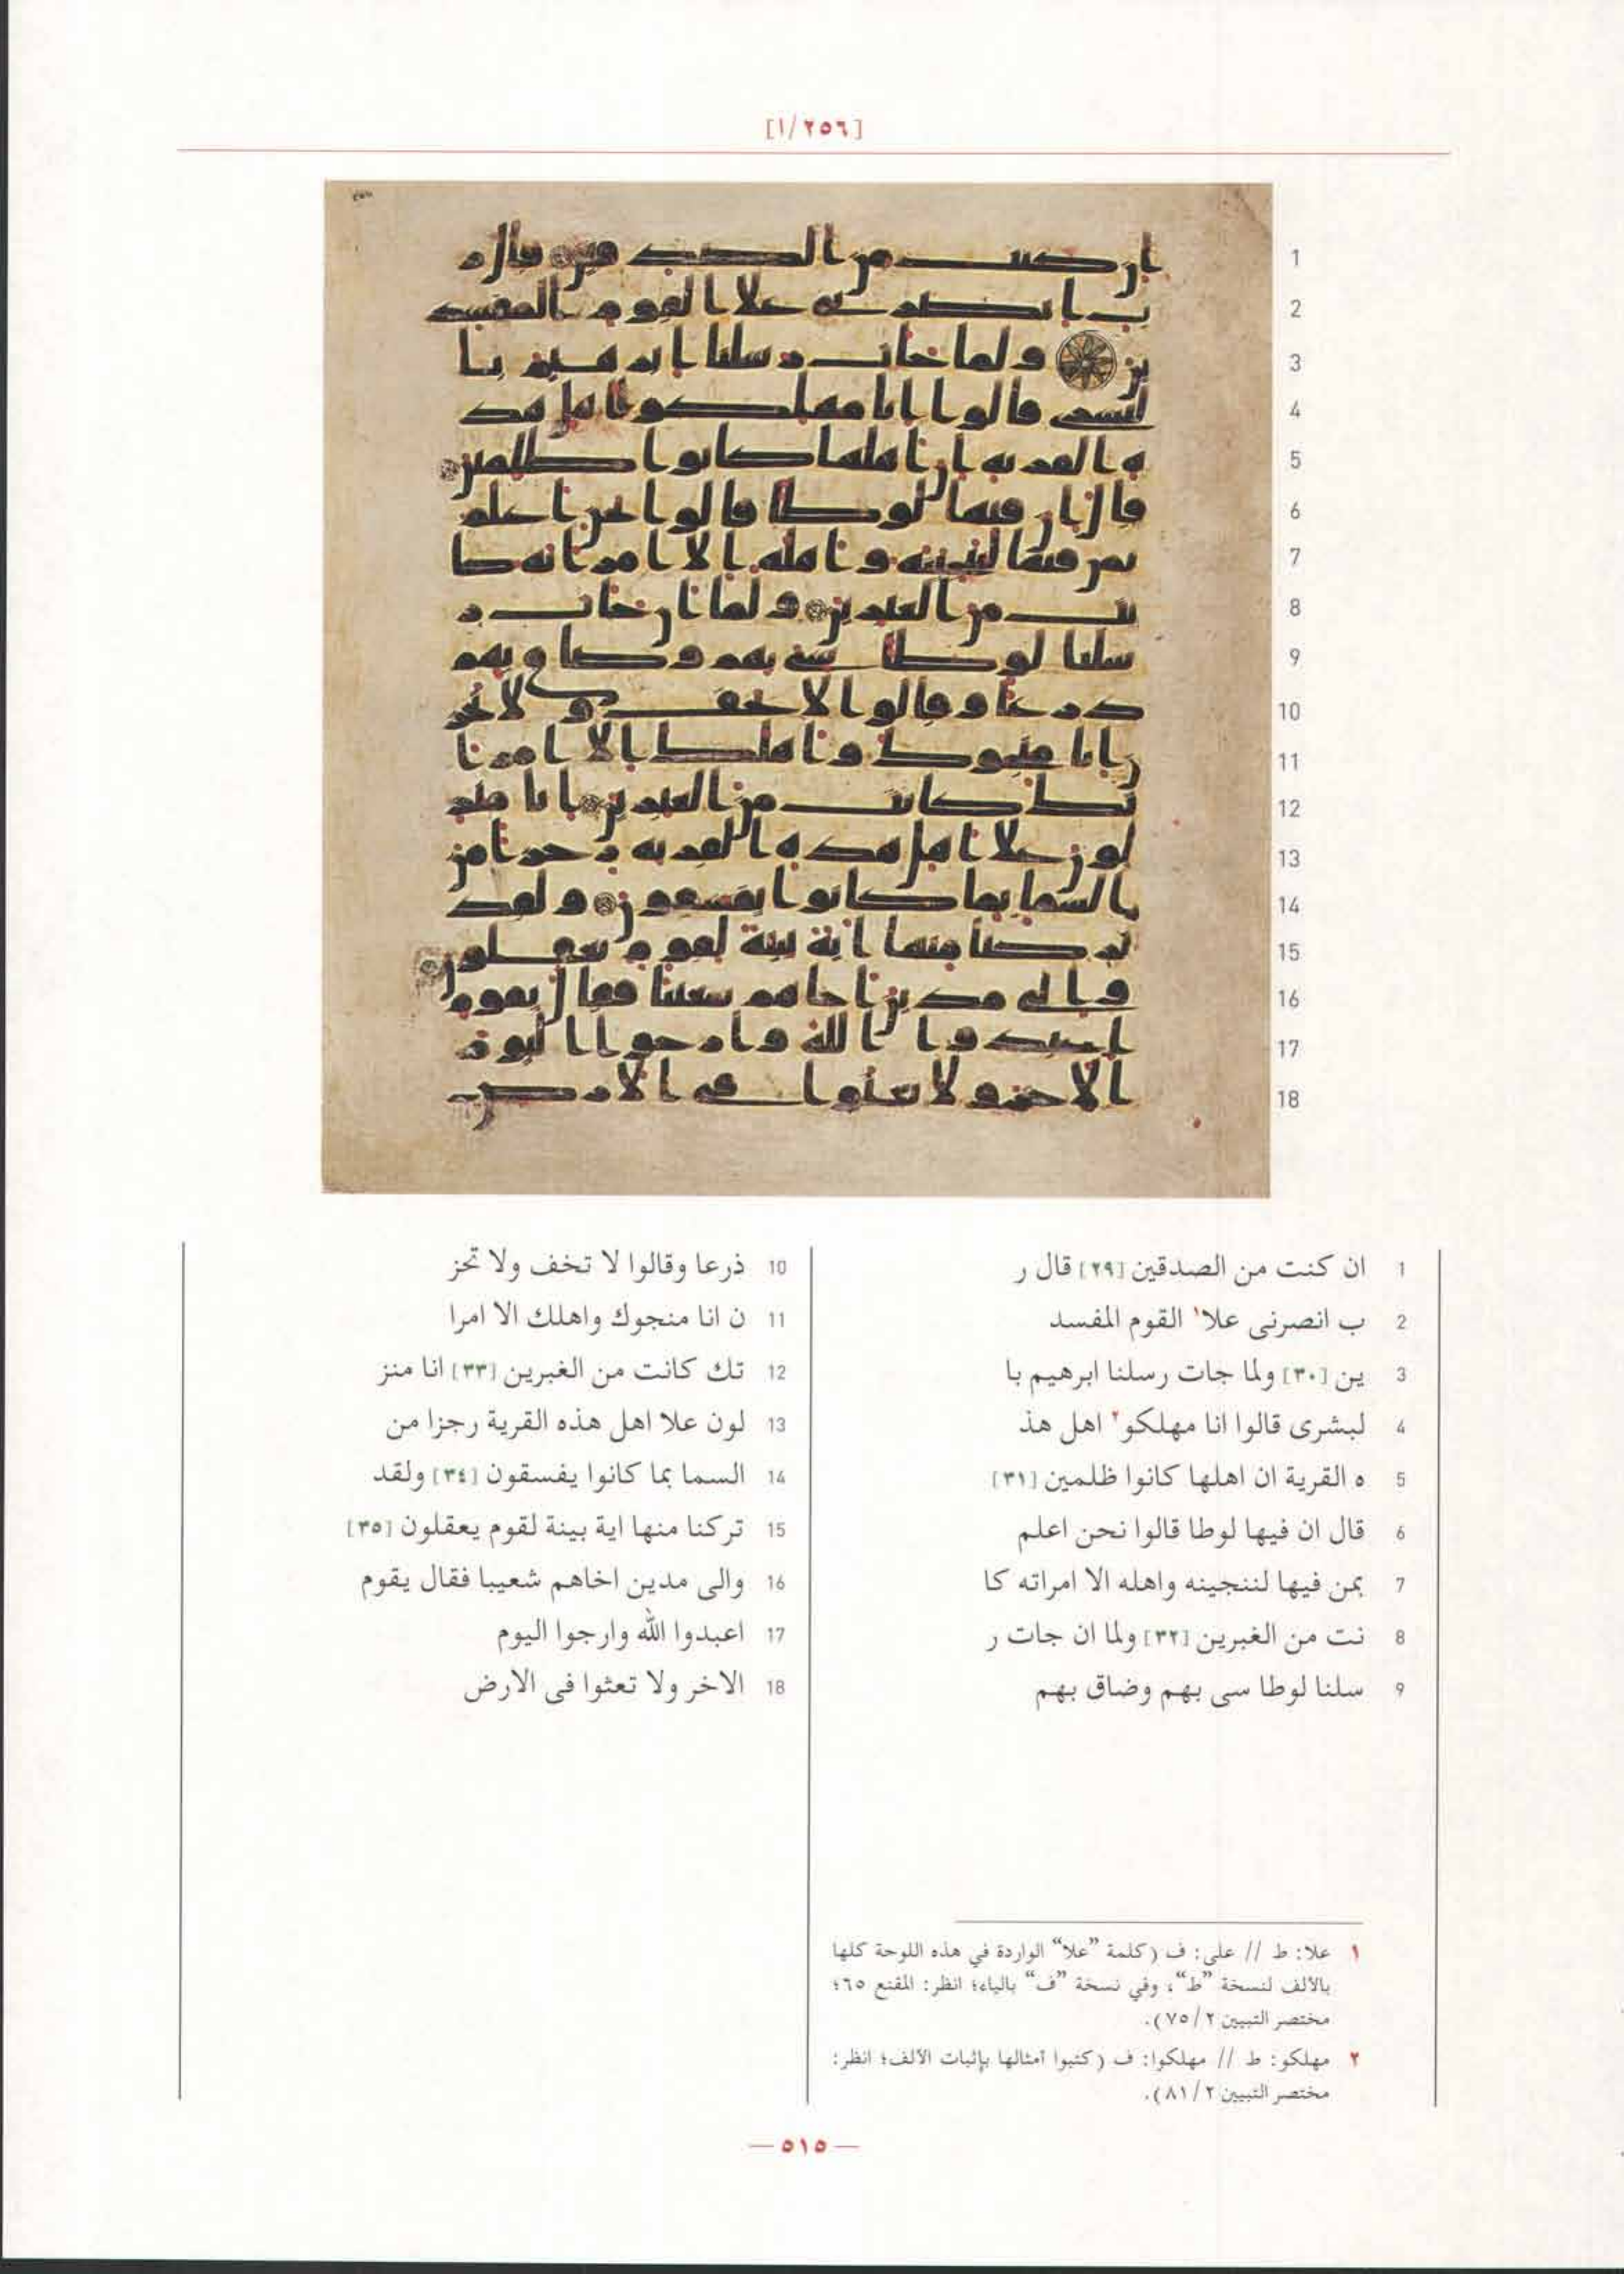 [٢٥٦/١]
1
2
3
4
5
6
7
8
9
10
11
12
13
14
15
16
17
18
1 ان كنت من الصدقين [٢٩] قال ر
2 ب انصرنى علا١ القوم المفسد
3 ين [٣٠] ولما جات رسلنا ابرهيم با
4 لبشرى قالوا انا مهلكو٢ اهل هذ
5 ه القرية ان اهلها كانوا ظلمين [٣١]
6 قال ان فيها لوطا قالوا نحن اعلم
7 بمن فيها لننجينه واهله الا امراته كا
8 نت من الغبرين [٣٢] ولما ان جات ر
9 سلنا لوطا سى بهم وضاق بهم
10 ذرعا وقالوا لا تخف ولا تحز
11 ن انا منجوك واهلك الا امرا
12 تك كانت من الغبرين [٣٣] انا منز
13 لون علا اهل هذه القرية رجزا من
14 السما بما كانوا يفسقون [٣٤] ولقد
15 تركنا منها اية بينة لقوم يعقلون [٣٥]
16 والى مدين اخاهم شعيبا فقال يقوم
17 اعبدوا الله وارجوا اليوم
18 الاخر ولا تعثوا فى الارض
١ علا: ط // على: ف (كلمة "علا" الواردة في هذه اللوحة كلها
بالألف لنسخة "ط"، وفي نسخة "ف" بالياء؛ انظر: المقنع ٦٥؛
مختصر التبيين ٧٥/٢).
٢ مهلكو: ط // مهلكوا: ف (كتبوا أمثالها بإثبات الألف؛ انظر:
مختصر التبيين ٨١/٢).
— ٥١٥ —